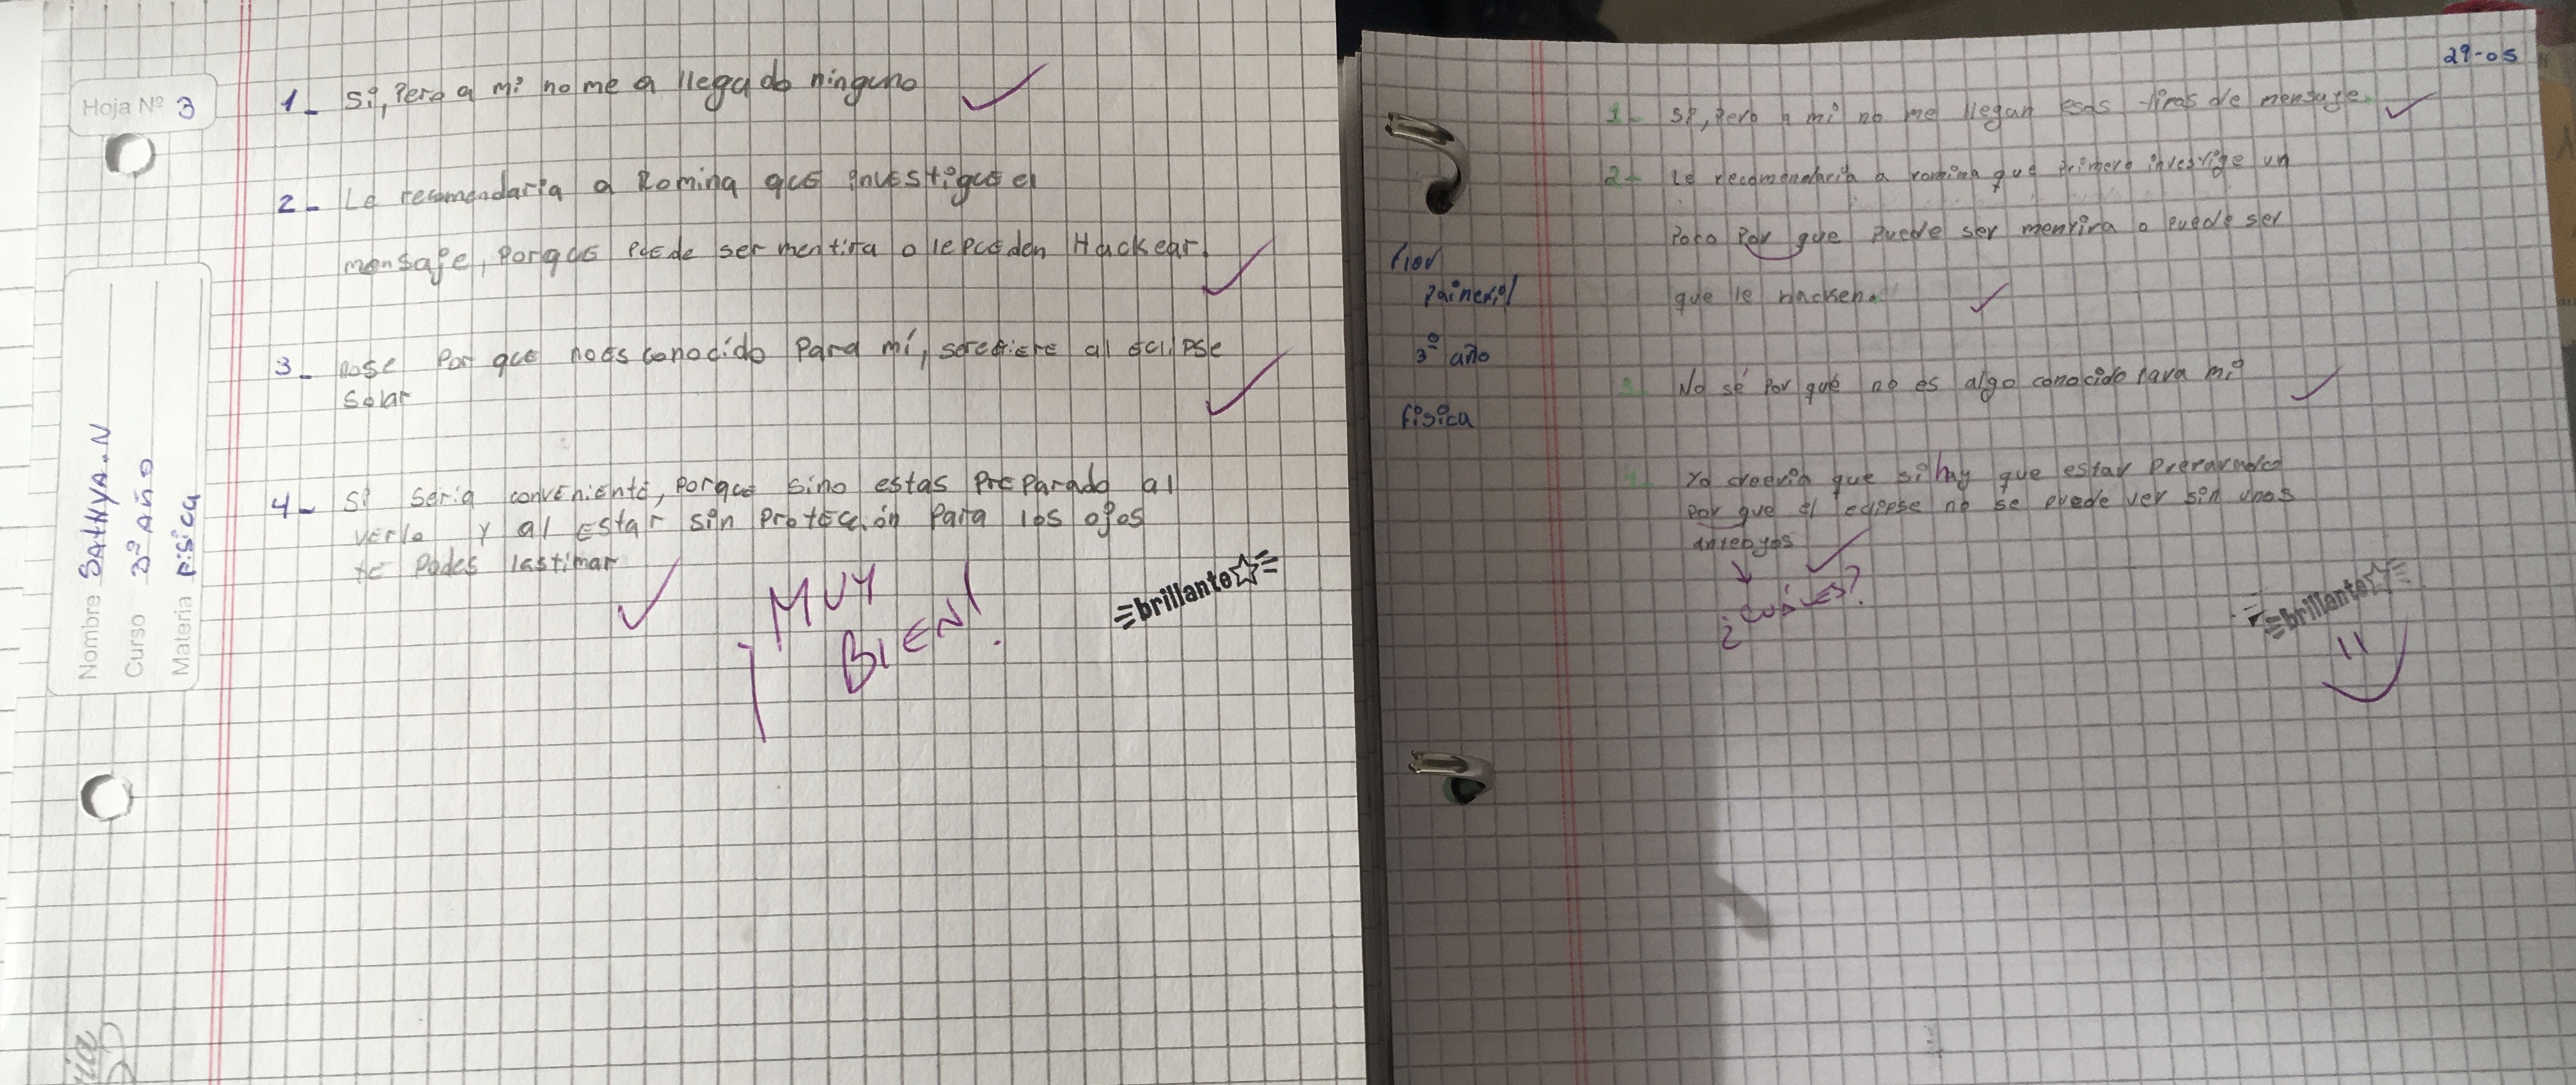 Hoja Nº 3
1_ Si, Pero a mi no me a llegado ninguno
2_ Le recomendaria a Romina que investigue el
mensaje, Porque Puede ser mentira o le pueden Hackear.
3_ nose Por que noes conocido Para mí, serefiere al eclipse
solar
4_ Si seria conveniente, porque sino estas PrEParado al
verlo y al EStar sin protección Para los ojos
te Podes lastimar
¡MUY
BIEN!
brillante
Nombre SAHYA.N
Curso 3º AÑO
Materia Fisica
29-05
1_ Si, Pero a mi no me llegan esos tipos de mensaje.
2_ Le recomendaria a romina que Primero investige un
Poco Por que Puede ser mentira o Puede ser
que le hackeen.
Flor
Painefil
3º año
Fisica
3_ No sé Por qué no es algo conocido Para mi
4_ Yo creeria que si hay que estar Preparado
Por que el eclipse no se puede ver sin unos
anteojos
¿CUÁLES?
brillante